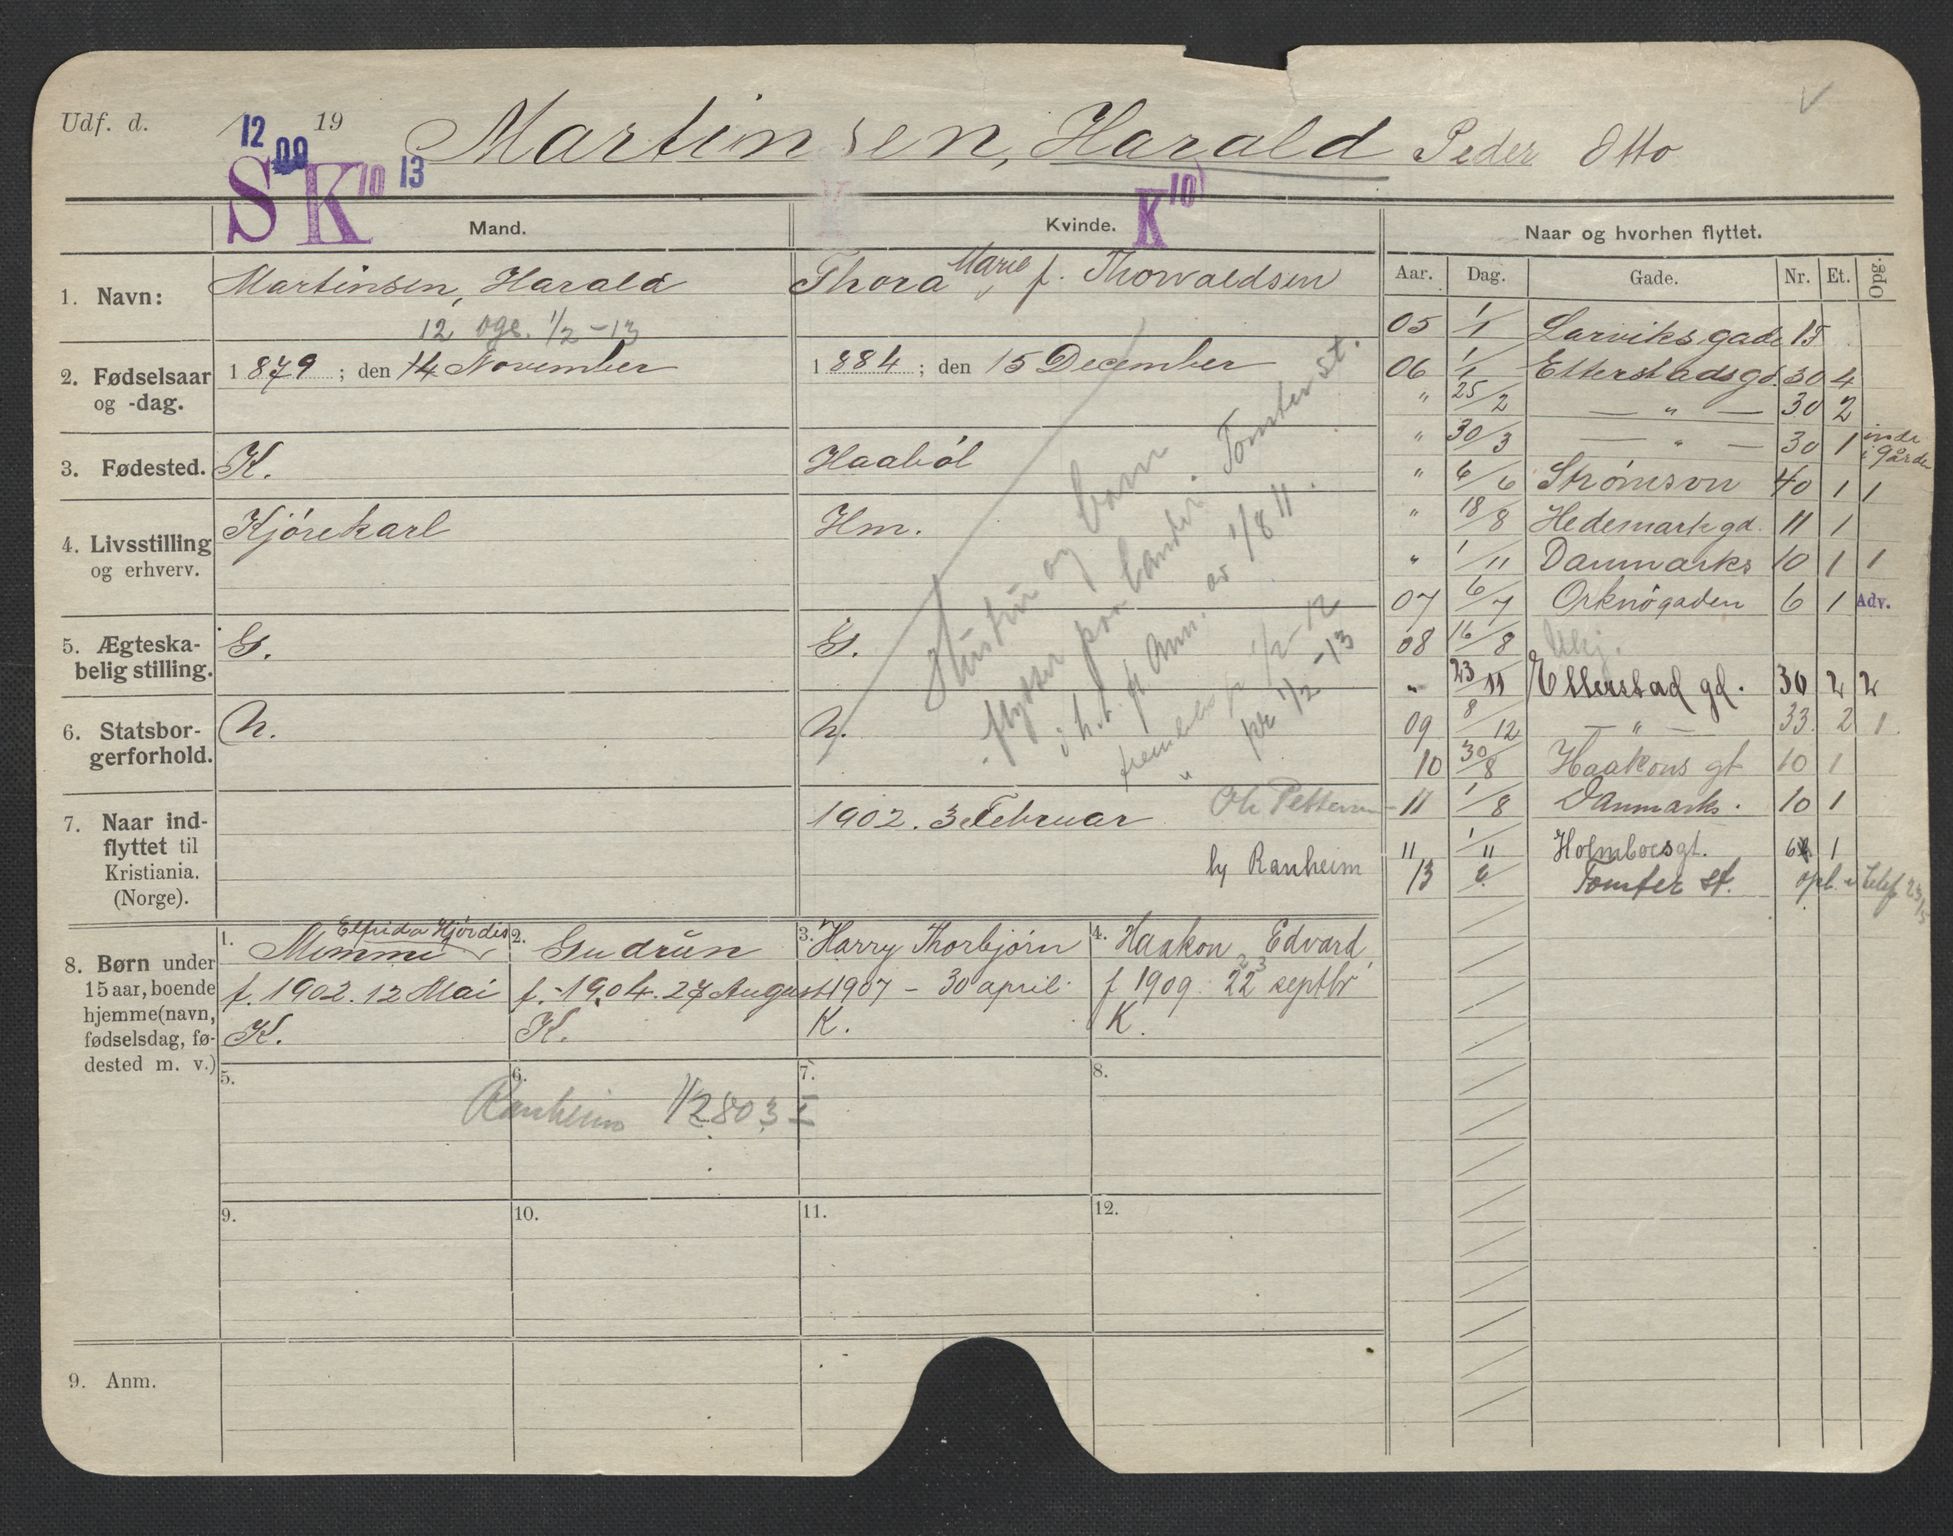 Udf. d. 19
12 09
S K 10 13
Martinsen, Harald Peder Otto
Mand.
Kvinde.
K 10
Naar og hvorhen flyttet.
1. Navn:
Martinsen, Harald
Thora Marie f. Thorvaldsen
12 oge. 1/2 - 13
2. Fødselsaar og -dag.
1879; den 14 November
1884; den 15 December
3. Fødested.
K.
Haaböl
4. Livsstilling og erhverv.
Kjörekarl
Hm.
5. Ægteskabelig stilling.
G.
G.
6. Statsborgerforhold.
N.
N.
Hustru og barn
flytter paa landet: Tomter st.
i h. t. fl Ann. av 1/8 11.
1/2 - 12
" pr 1/2 - 13
7. Naar indflyttet til Kristiania. (Norge).
1902. 3 Februar
Ole Pettersen
by Ranheim
8. Børn under 15 aar, boende hjemme (navn, fødselsdag, fødested m. v.)
1. Mimmi Elfrida Hjördis
f. 1902. 12 Mai
K.
2. Gudrun
f. 1904. 27 August
K.
3. Harry Thorbjörn
1907 - 30 april
K.
4. Haakon Edvard
f 1909. 22 septbr
23
K.
5.
6.
7.
8.
Ranheim 1/2 803 I
9.
10.
11.
12.
9. Anm.
Aar. Dag. Gade. Nr. Et. Opg.
05 1/1 Larviksgade 15
06 1/1 Etterstadsgd. 30 4
" 25/2 — " — 30 2
" 30/3 — " — 30 1 inde i gården
" 6/6 Strømsvn 40 1 1
" 18/8 Hedemarkgd. 11 1
" 1/11 Danmarks 10 1 1
07 6/7 Orknögaden 6 1 Adv.
08 16/8 Ubkj.
" 23/11 Etterstad gd. 30 2 2
09 8/12 — " — 33 2 1
10 30/8 Haakons gt 10 1
11 1/8 Danmarks. 10 1
11 1/11 Holmboesgt. 1
13 Tomter st. opl. 23/5